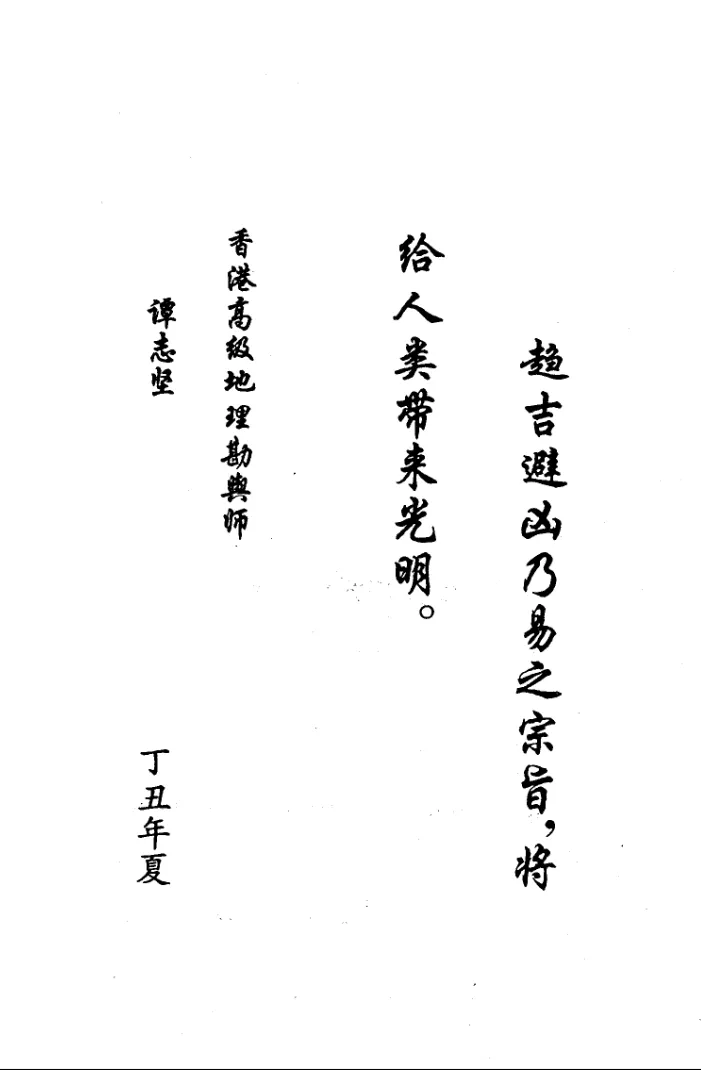 趋吉避凶乃易之宗旨，将
给人类带来光明。
香港高级地理勘舆师
谭志坚
丁丑年夏